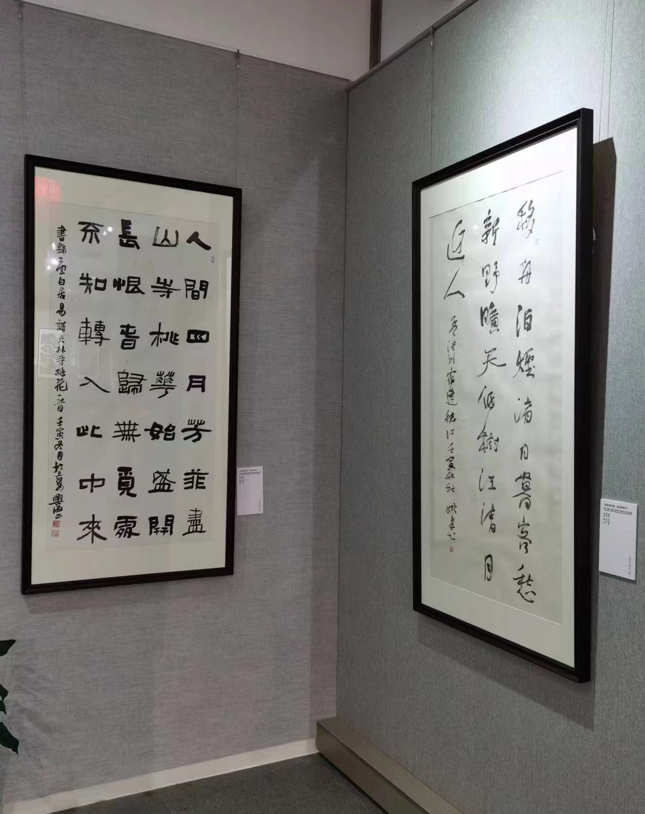 人間四月芳菲盡
山寺桃華始盛開
長恨春歸無覓處
不知轉入此中來
書錄白居易詩大林寺桃花一首壬寅冬月於
移舟泊煙渚日暮客愁
新野曠天低樹江清月
近人
孟浩然宿建德江壬寅